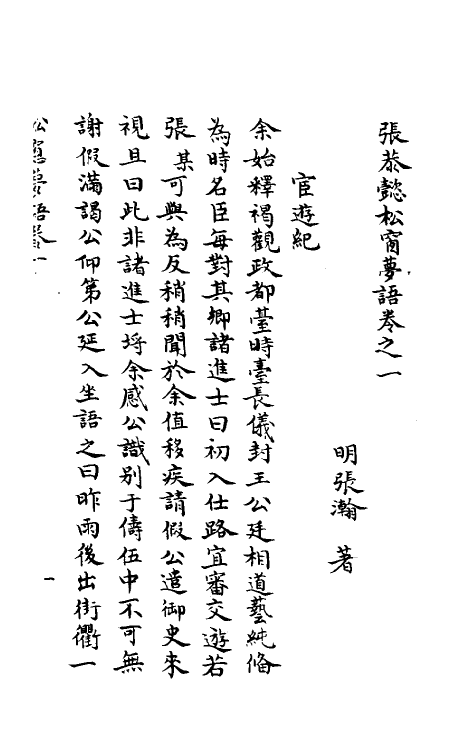 張恭懿松窗夢語卷之一
明張瀚　著
宦遊紀
余始釋褐觀政都臺時臺長儀封王公廷相道藝純偹
為時名臣每對其鄉諸進士曰初入仕路宜審交遊若
張某可與為友稍稍聞於余值移疾請假公遣御史來
視且曰此非諸進士埒余感公識别于儔伍中不可無
謝假滿謁公仰第公延入坐語之曰昨雨後出街衢一
松窗夢語卷一
一